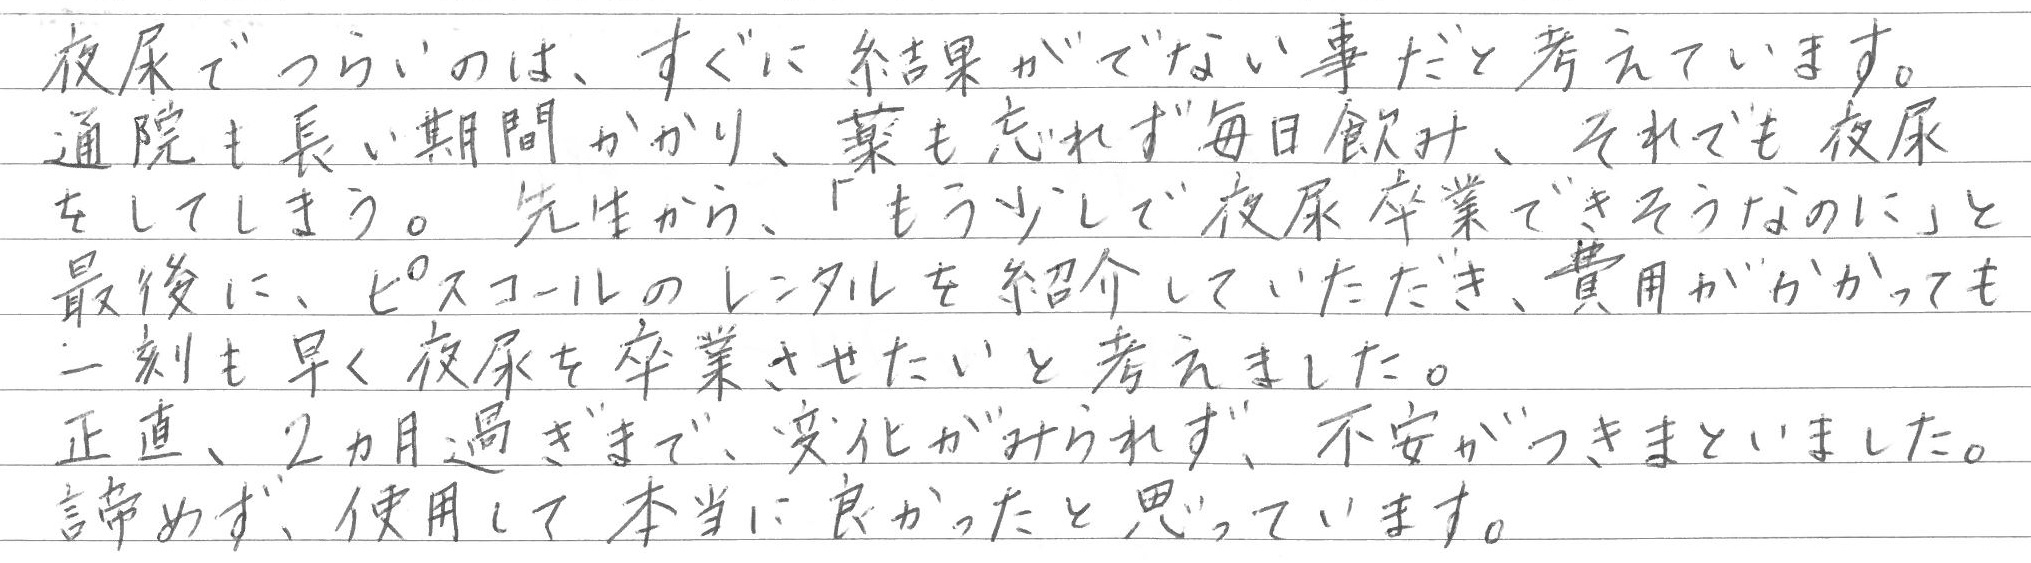 夜尿でつらいのは、すぐに結果がでない事だと考えています。
通院も長い期間かかり、薬も忘れず毎日飲み、それでも夜尿
をしてしまう。先生から、「もう少しで夜尿卒業できそうなのに」と
最後に、ピスコールのレンタルを紹介していただき、費用がかかっても
一刻も早く夜尿を卒業させたいと考えました。
正直、2ヵ月過ぎまで、変化がみられず、不安がつきまといました。
諦めず、使用して本当に良かったと思っています。